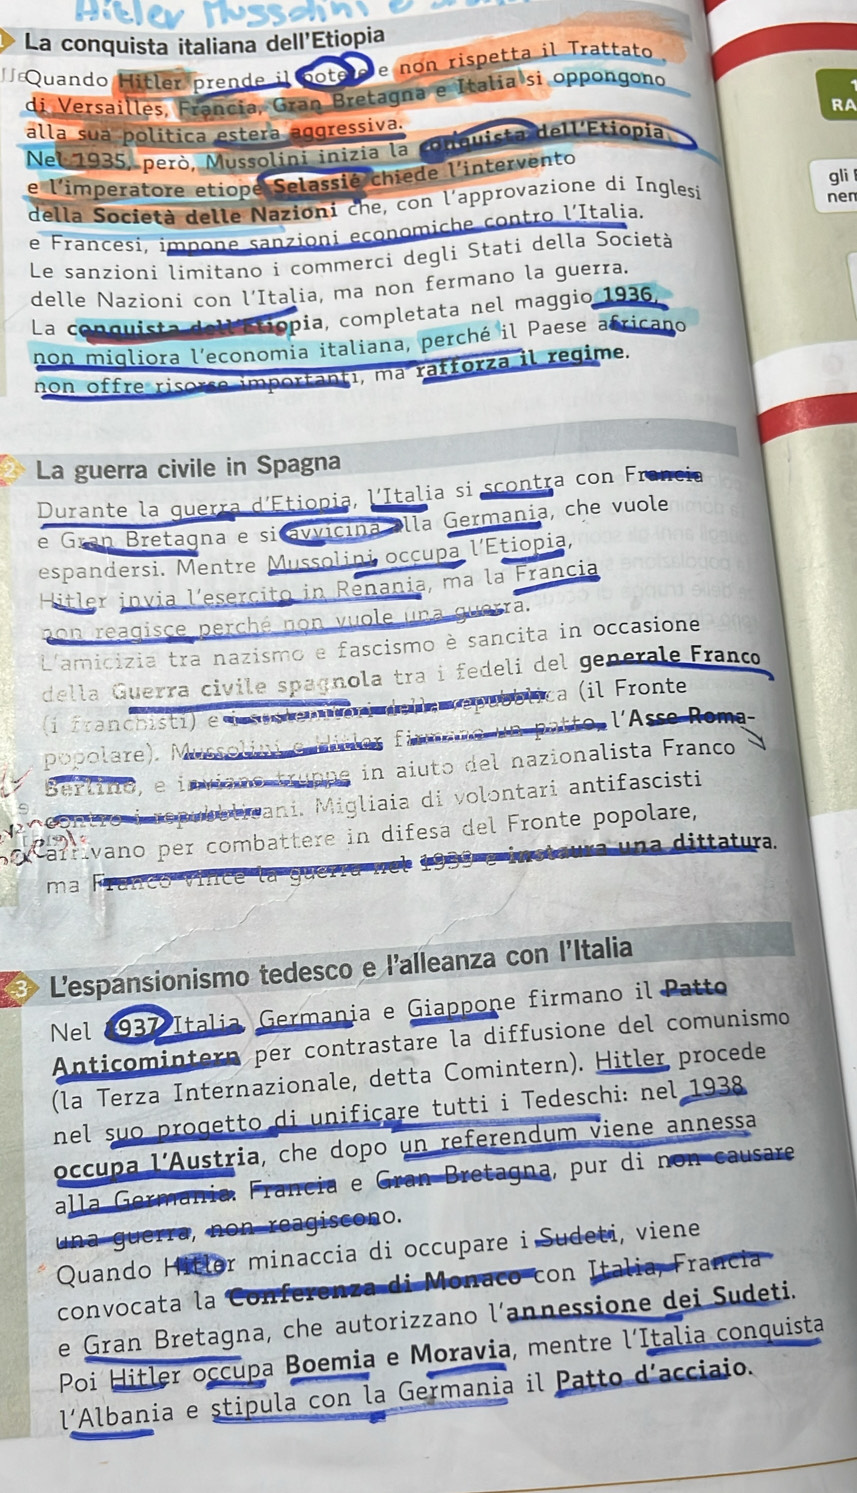 Hitler Mussolini e
La conquista italiana dell'Etiopia
Quando Hitler prende il potere e non rispetta il Trattato
di Versailles, Francia, Gran Bretagna e Italia si oppongono
alla sua politica estera aggressiva.
Nel 1935, però, Mussolini inizia la conquista dell'Etiopia
e l'imperatore etiope Selassié chiede l'intervento
della Società delle Nazioni che, con l'approvazione di Inglesi
e Francesi, impone sanzioni economiche contro l'Italia.
Le sanzioni limitano i commerci degli Stati della Società
delle Nazioni con l'Italia, ma non fermano la guerra.
La conquista dell'Etiopia, completata nel maggio 1936,
non migliora l'economia italiana, perché il Paese africano
non offre risorse importanti, ma rafforza il regime.
2 La guerra civile in Spagna
Durante la guerra d'Etiopia, l'Italia si scontra con Francia
e Gran Bretagna e si avvicina alla Germania, che vuole
espandersi. Mentre Mussolini occupa l'Etiopia,
Hitler invia l'esercito in Renania, ma la Francia
non reagisce perché non vuole una guerra.
L'amicizia tra nazismo e fascismo è sancita in occasione
della Guerra civile spagnola tra i fedeli del generale Franco
(i franchisti) e i sostenitori della repubblica (il Fronte
popolare). Mussolini e Hitler firmano un patto, l'Asse Roma-
Berlino, e inviano truppe in aiuto del nazionalista Franco
contro i repubblicani. Migliaia di volontari antifascisti
arrivano per combattere in difesa del Fronte popolare,
ma Franco vince la guerra nel 1939 e instaura una dittatura.
3 L'espansionismo tedesco e l'alleanza con l'Italia
Nel 1937 Italia, Germania e Giappone firmano il Patto
Anticomintern per contrastare la diffusione del comunismo
(la Terza Internazionale, detta Comintern). Hitler procede
nel suo progetto di unificare tutti i Tedeschi: nel 1938
occupa l'Austria, che dopo un referendum viene annessa
alla Germania. Francia e Gran Bretagna, pur di non causare
una guerra, non reagiscono.
Quando Hitler minaccia di occupare i Sudeti, viene
convocata la Conferenza di Monaco con Italia, Francia
e Gran Bretagna, che autorizzano l'annessione dei Sudeti.
Poi Hitler occupa Boemia e Moravia, mentre l'Italia conquista
l'Albania e stipula con la Germania il Patto d'acciaio.
RA
gli
nem